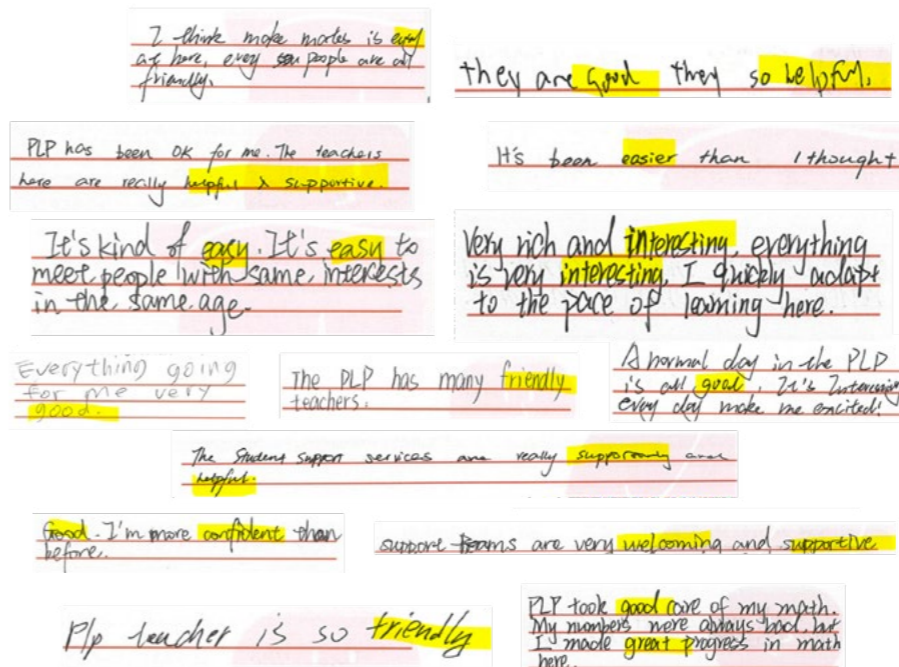 I think make mates is easy
at here, every people are all
friendly.
they are good they so helpful.
PLP has been OK for me. The teachers
here are really helpful & supportive.
It's been easier than I thought
It's kind of easy. It's easy to
meet people with same interests
in the same age.
Very rich and interesting, everything
is very interesting, I quickly adapt
to the pace of learning here.
Everything going
for me very
good.
The PLP has many friendly
teachers.
A normal day in the PLP
is all good. It's
every day make me excited!
The Student support services are really and
helpful.
Good. I'm more confident than
before.
support teams are very welcoming and supportive
Plp teacher is so friendly
PLP took good care of my math.
My numbers were always bad, but
I made great progress in math
here.